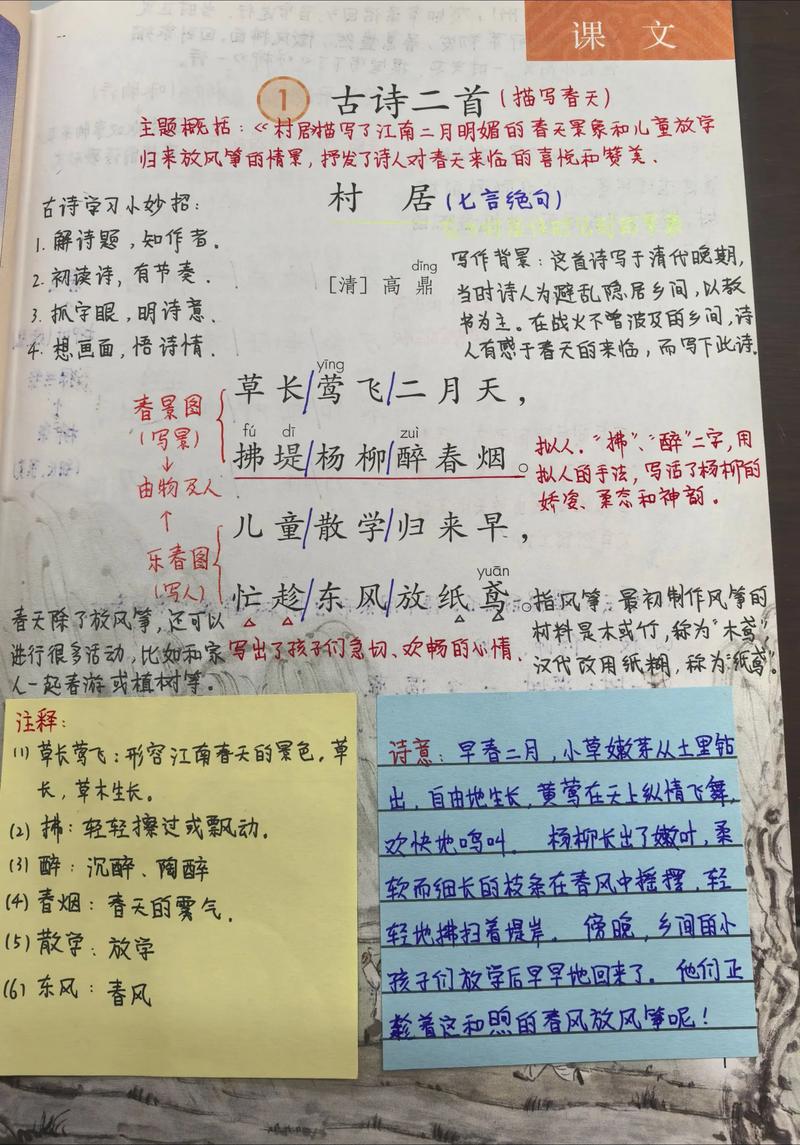 课 文
1 古诗二首(描写春天)
主题概括:《村居描写了江南二月明媚的春天景象和儿童放学
归来放风筝的情景,抒发了诗人对春天来临的喜悦和赞美.
古诗学习小妙招:
1. 解诗题,知作者.
2. 初读诗,有节奏.
3. 抓字眼,明诗意.
4. 想画面,悟诗情.
村 居(七言绝句)
dǐng
[清]高 鼎
写作背景:这首诗写于清代晚期,
当时诗人为避乱隐居乡间,以教
书为主。在战火不曾波及的乡间,诗
人有感于春天的来临,而写下此诗.
yīng
草长/莺飞/二月天,
fú dī zuì
拂堤/杨柳/醉春烟。
儿童/散学/归来早,
yuān
忙趁/东风/放纸鸢。
春景图
(写景)
↓
由物及人
↑
乐春图
(写人)
拟人."拂"、"醉"二字,用
拟人的手法,写活了杨柳的
娇姿、柔态和神韵。
指风筝,最初制作风筝的
材料是木或竹,称为"木鸢"
汉代改用纸糊,称为"纸鸢"。
春天除了放风筝,还可以
进行很多活动,比如和家
人一起春游或植树等。
写出了孩子们急切、欢畅的心情.
注释:
(1) 草长莺飞:形容江南春天的景色。草
长,草木生长。
(2) 拂:轻轻擦过或飘动.
(3) 醉:沉醉、陶醉
(4) 春烟:春天的雾气.
(5) 散学:放学
(6) 东风:春风
诗意:早春二月,小草嫩芽从土里钻
出,自由地生长,黄莺在天上纵情飞舞,
欢快地鸣叫。 杨柳长出了嫩叶,柔
软而细长的枝条在春风中摇摆,轻
轻地拂扫着堤岸。 傍晚,乡间的小
孩子们放学后早早地回来了。他们正
趁着这和煦的春风放风筝呢!